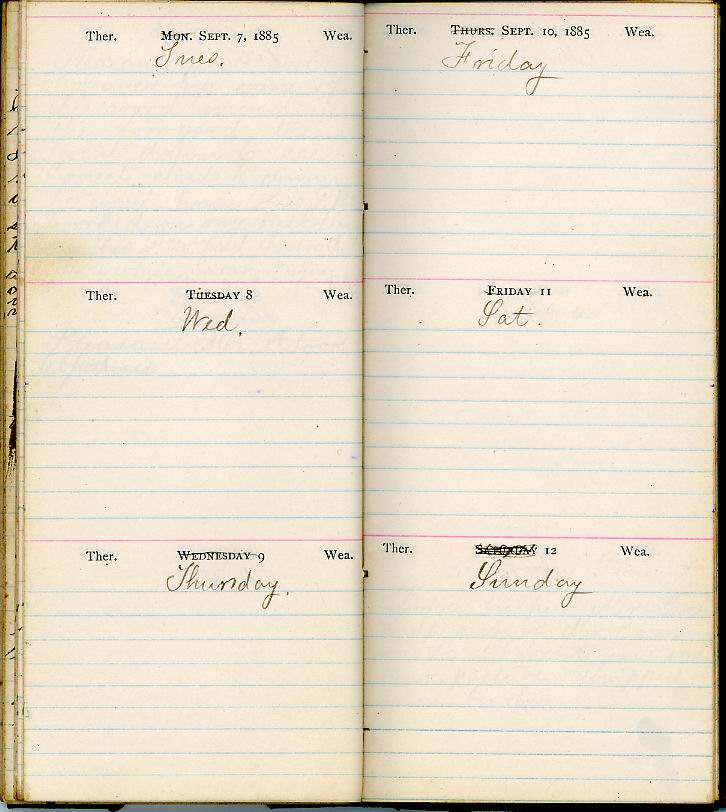 Ther. MON. SEPT. 7, 1885 Wea.
Tues.
Ther. TUESDAY 8 Wea.
Wed.
Ther. WEDNESDAY 9 Wea.
Thursday.
Ther. THURS. SEPT. 10, 1885 Wea.
Friday
Ther. FRIDAY 11 Wea.
Sat.
Ther. SATURDAY 12 Wea.
Sunday